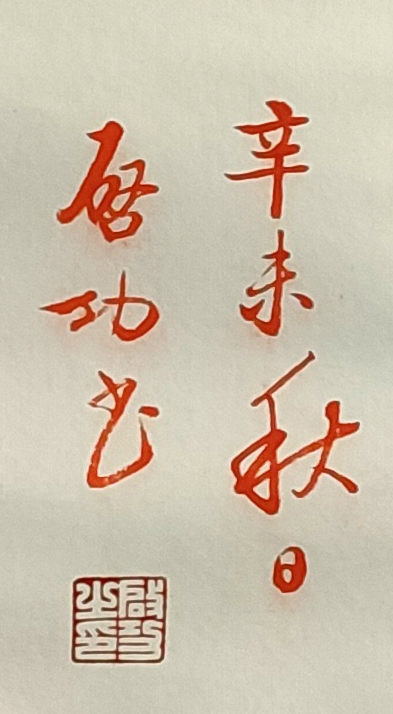 辛未秋日
启功书
启功之印